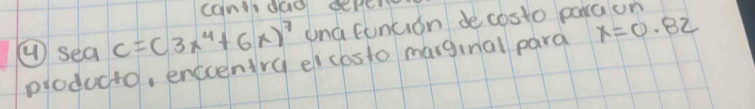 cantidad
④ sea c=(3x⁴+6x)⁷ una función de costo para un
producto, encuentra el costo marginal para x=0.82